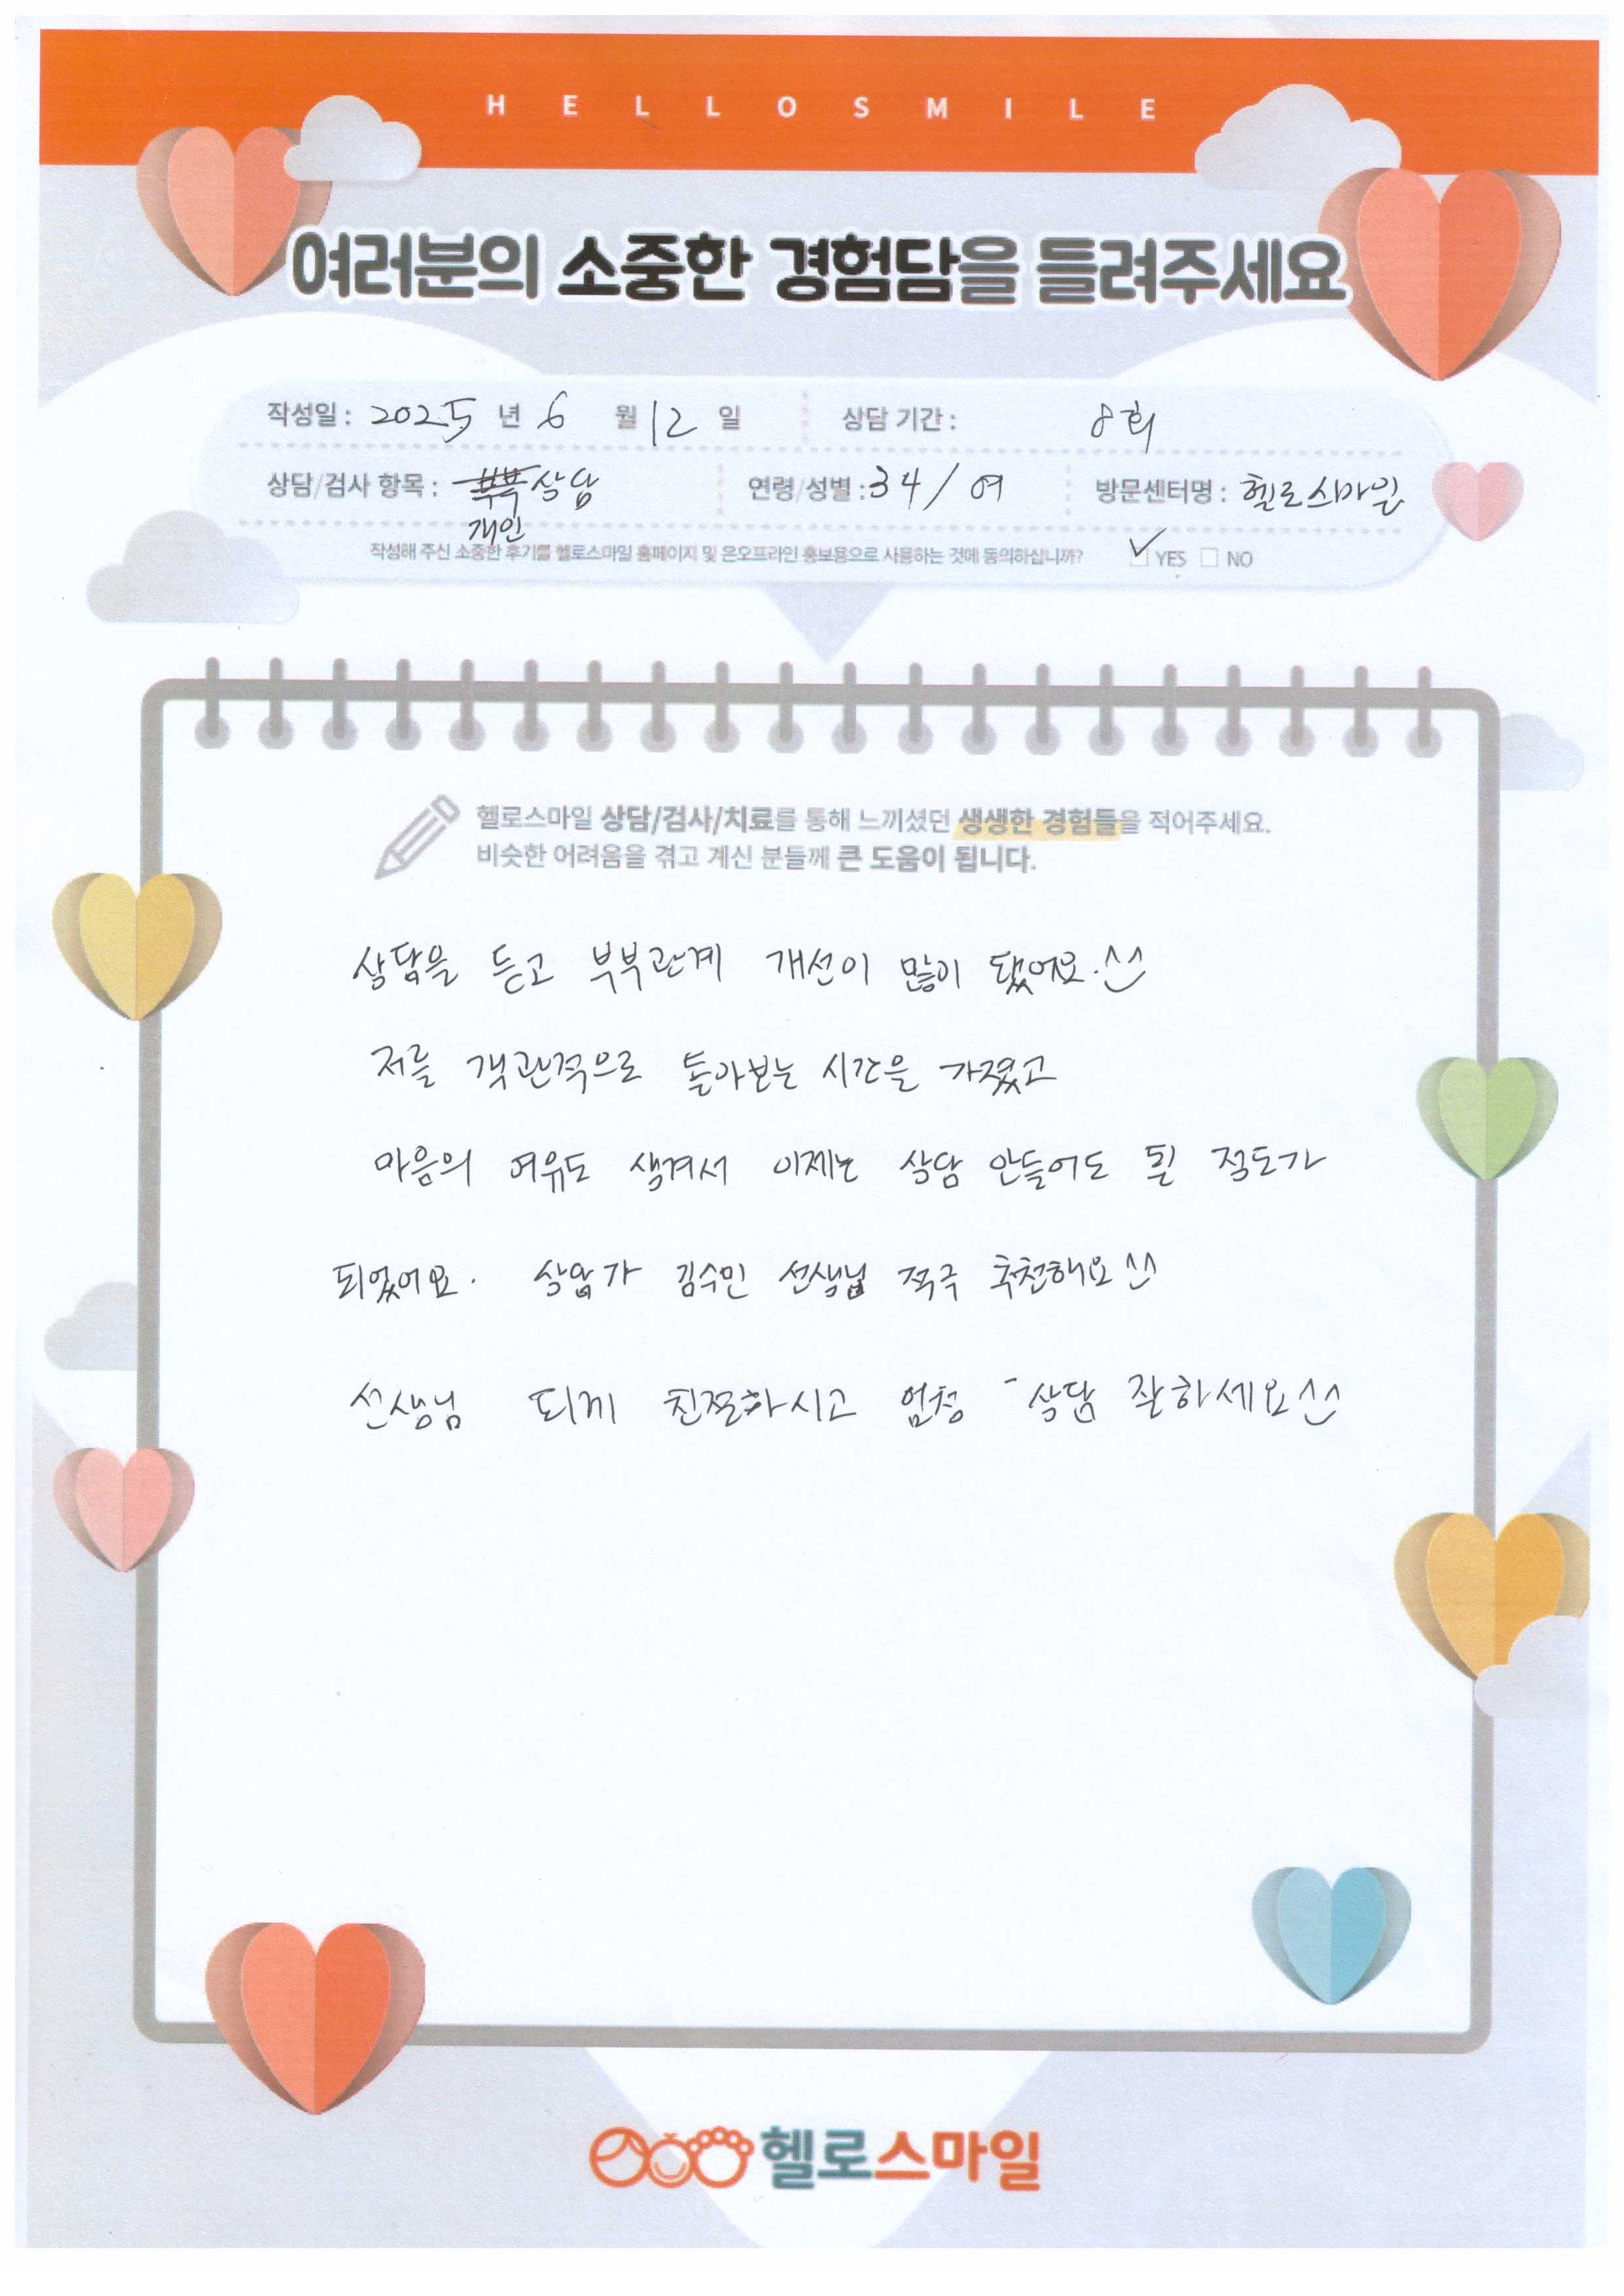 HELLOSMILE
여러분의 소중한 경험담을 들려주세요
작성일 : 2025 년 6 월 12 일 상담 기간 : 8회
상담/검사 항목 : 부부 상담 연령/성별 : 34 / 여 방문센터명 : 헬로스마일
개인
작성해 주신 소중한 후기를 헬로스마일 홈페이지 및 온오프라인 홍보용으로 사용하는 것에 동의하십니까? ✓ YES □ NO
헬로스마일 상담/검사/치료를 통해 느끼셨던 생생한 경험들을 적어주세요.
비슷한 어려움을 겪고 계신 분들께 큰 도움이 됩니다.
상담을 듣고 부부관계 개선이 많이 됐어요.^^
저를 객관적으로 돌아보는 시간을 가졌고
마음의 여유도 생겨서 이제는 상담 안들어도 될 정도가
되었어요. 상담가 김수민 선생님 적극 추천해요^^
선생님 되게 친절하시고 엄청 상담 잘하세요^^
헬로스마일